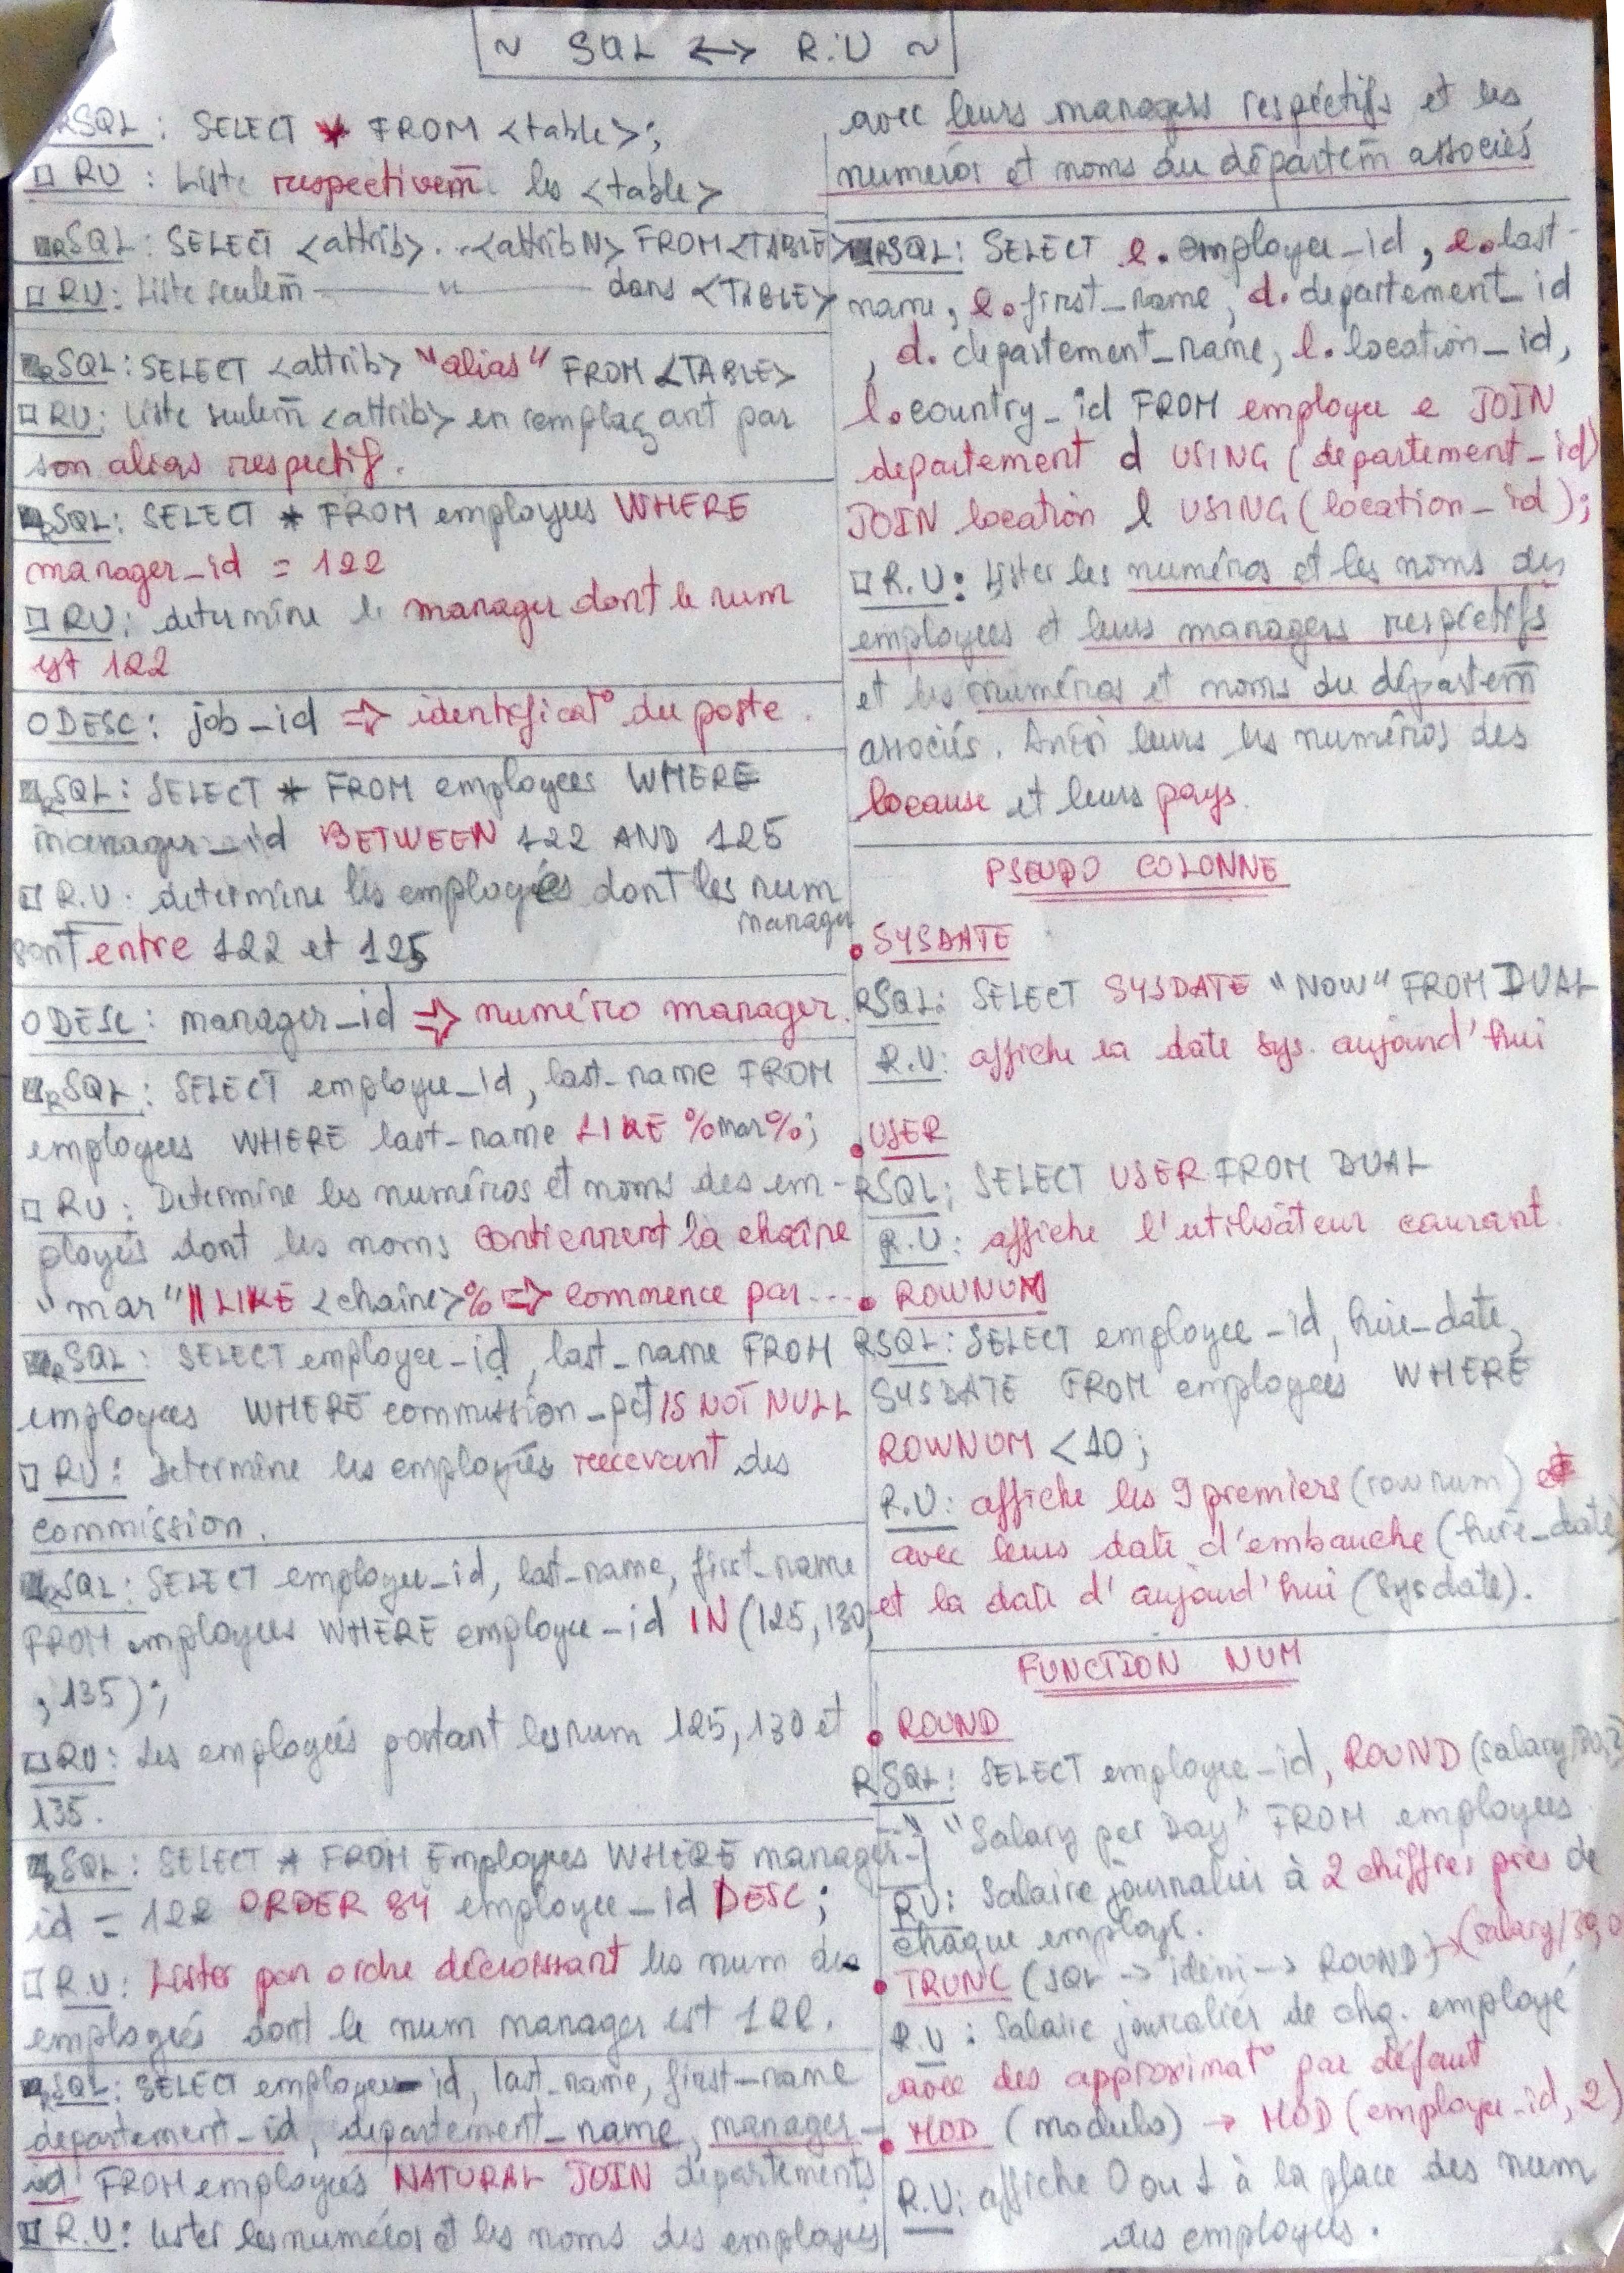 ~ SQL <-> R.U ~
RSQL : SELECT * FROM <table>;
□ RU : Liste respectivem̄ les <table>
RSQL : SELECT <attrib>...<attribN> FROM <TABLE>
□ RU : Liste seulem̄ ——— " ——— dans <TABLE>
RSQL : SELECT <attrib> "alias" FROM <TABLE>
□ RU : Liste seulem̄ <attrib> en remplaçant par
son alias respectif.
RSQL : SELECT * FROM employees WHERE
manager_id = 122
□ RU : determine le manager dont le num
est 122
O DESC : job_id => identificat° du poste.
RSQL : SELECT * FROM employees WHERE
manager_id BETWEEN 122 AND 125
□ R.U : determine les employés dont les num
manager
sont entre 122 et 125
O DESC : manager_id => numéro manager.
RSQL : SELECT employee_id, last_name FROM
employees WHERE last_name LIKE %mar%;
□ RU : Determine les numéros et noms des em-
ployés dont les noms contiennent la chaîne
"mar" || LIKE <chaîne>% => commence par...
RSQL : SELECT employee_id, last_name FROM
employees WHERE commission_pct IS NOT NULL
□ RU : determine les employés recevant des
commission.
RSQL : SELECT employee_id, last_name, first_name
FROM employees WHERE employee_id IN (125, 130
, 135);
□ RU : Les employés portant les num 125, 130 et
135.
RSQL : SELECT * FROM Employees WHERE manager_
id = 122 ORDER BY employee_id DESC;
□ R.U : Lister par ordre décroissant les num des
employés dont le num manager est 122.
RSQL : SELECT employee_id, last_name, first_name
departement_id, departement_name, manager_
id FROM employees NATURAL JOIN departements
□ R.U : lister les numéros et les noms des employés
avec leurs managers respectifs et les
numéros et noms du départem̄ associés
RSQL : SELECT e.employee_id, e.last-
name, e.first_name, d.departement_id
, d.departement_name, l.location_id,
l.country_id FROM employee e JOIN
departement d USING (departement_id)
JOIN location l USING (location_id);
□ R.U : Lister les numéros et les noms des
employees et leurs managers respectifs
et les numéros et noms du départem̄
associés. Ainsi leurs les numéros des
locause et leurs pays.
PSEUDO COLONNE
• SYSDATE
RSQL : SELECT SYSDATE "NOW" FROM DUAL
R.U : affiche la date sys. aujourd'hui
• USER
RSQL : SELECT USER FROM DUAL
R.U : affiche l'utilisateur courant.
• ROWNUM
RSQL : SELECT employee_id, hire_date,
SYSDATE FROM employees WHERE
ROWNUM < 10;
R.U : affiche les 9 premiers (rownum)
avec leurs date d'embauche (hire_date)
et la date d'aujourd'hui (sysdate).
FUNCTION NUM
• ROUND
RSQL : SELECT employee_id, ROUND (salary/30,2
"Salary per Day" FROM employees
RU : Salaire journalier à 2 chiffres près de
chaque employé.
• TRUNC (SQL -> idem -> ROUND) -> (salary/30,0
R.U : Salaire journalier de chq. employé
avec des approximat° par défaut
• MOD (modulo) -> MOD (employee_id, 2)
R.U : affiche 0 ou 1 à la place des num
des employees.